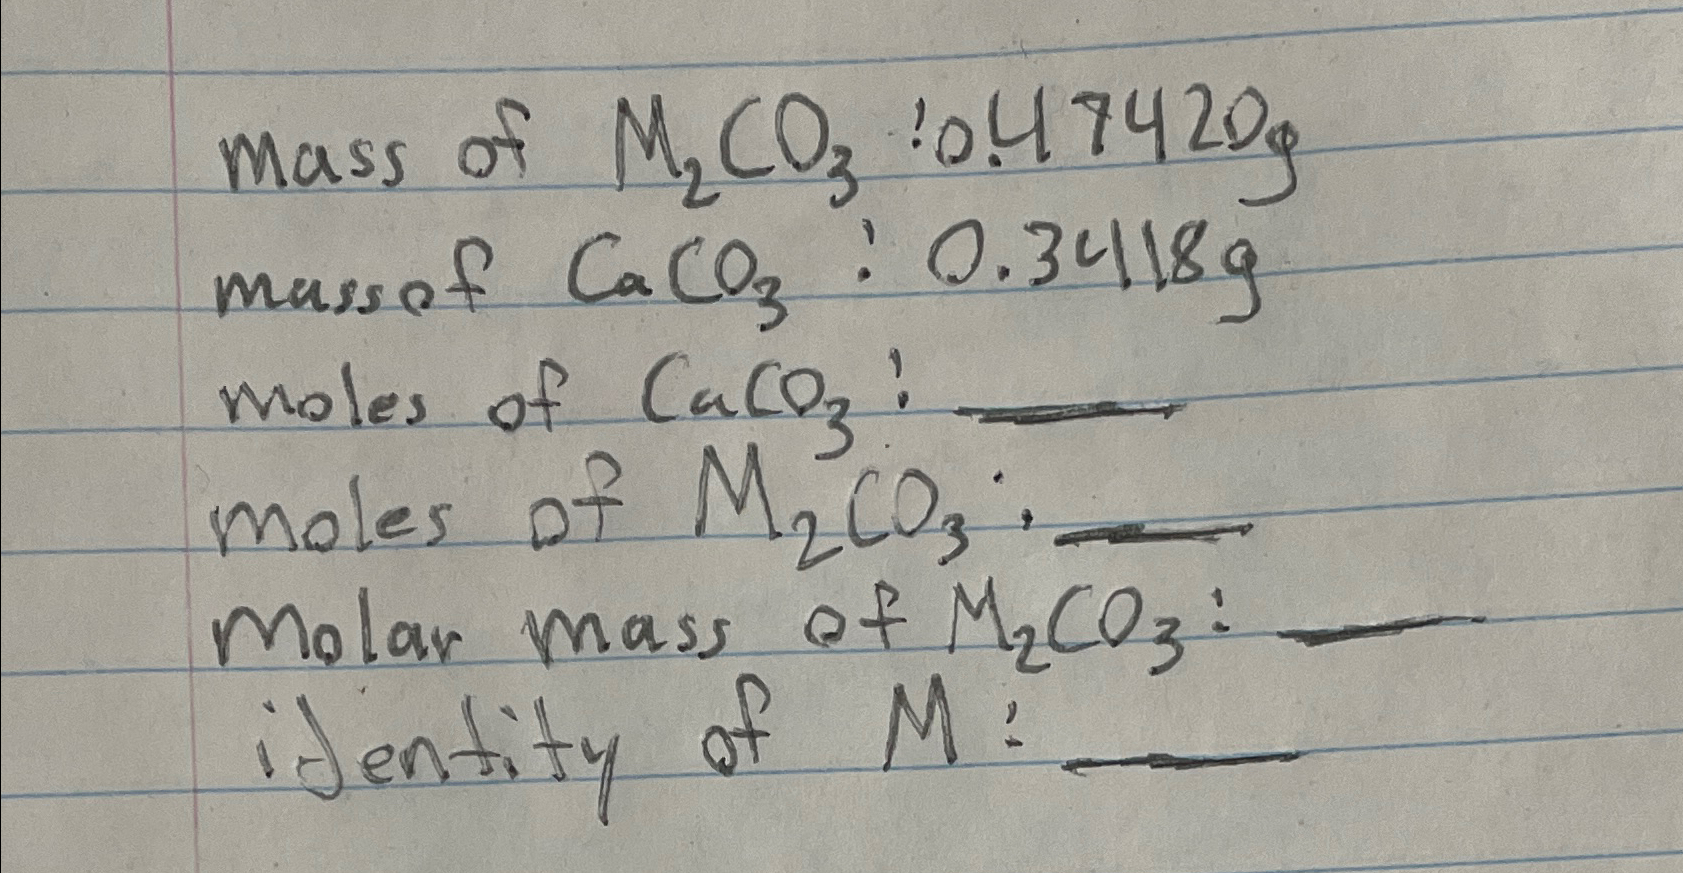 mass of M₂CO₃ : 0.47420g
mass of CaCO₃ : 0.3418g
moles of CaCO₃ : ____
moles of M₂CO₃ : ____
Molar mass of M₂CO₃ : ____
identity of M : ____